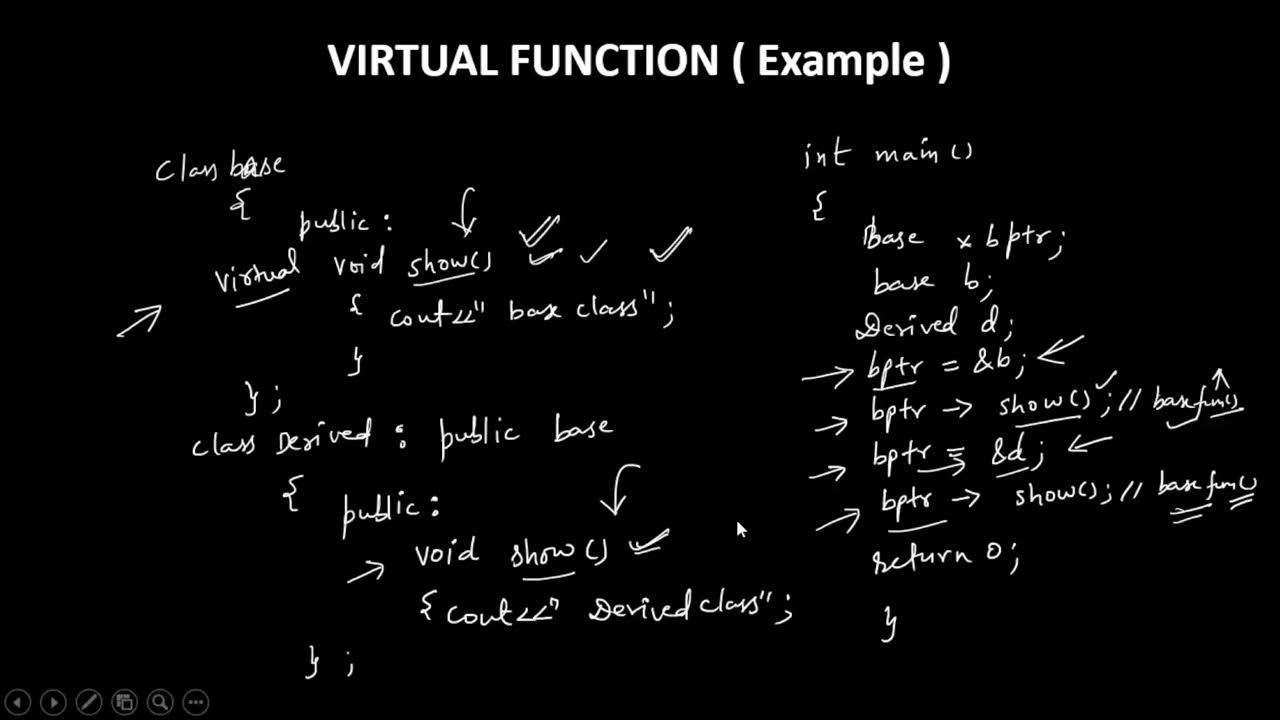 VIRTUAL FUNCTION ( Example )
class base
{
public:
virtual void show()
{ cout<<" base class";
}
};
class Derived : public base
{
public:
void show()
{ cout<<" Derived class";
} ;
int main()
{
Base * bptr;
base b;
Derived d;
bptr = &b;
bptr -> show(); // base fun()
bptr = &d;
bptr -> show(); // base fun()
return 0;
}